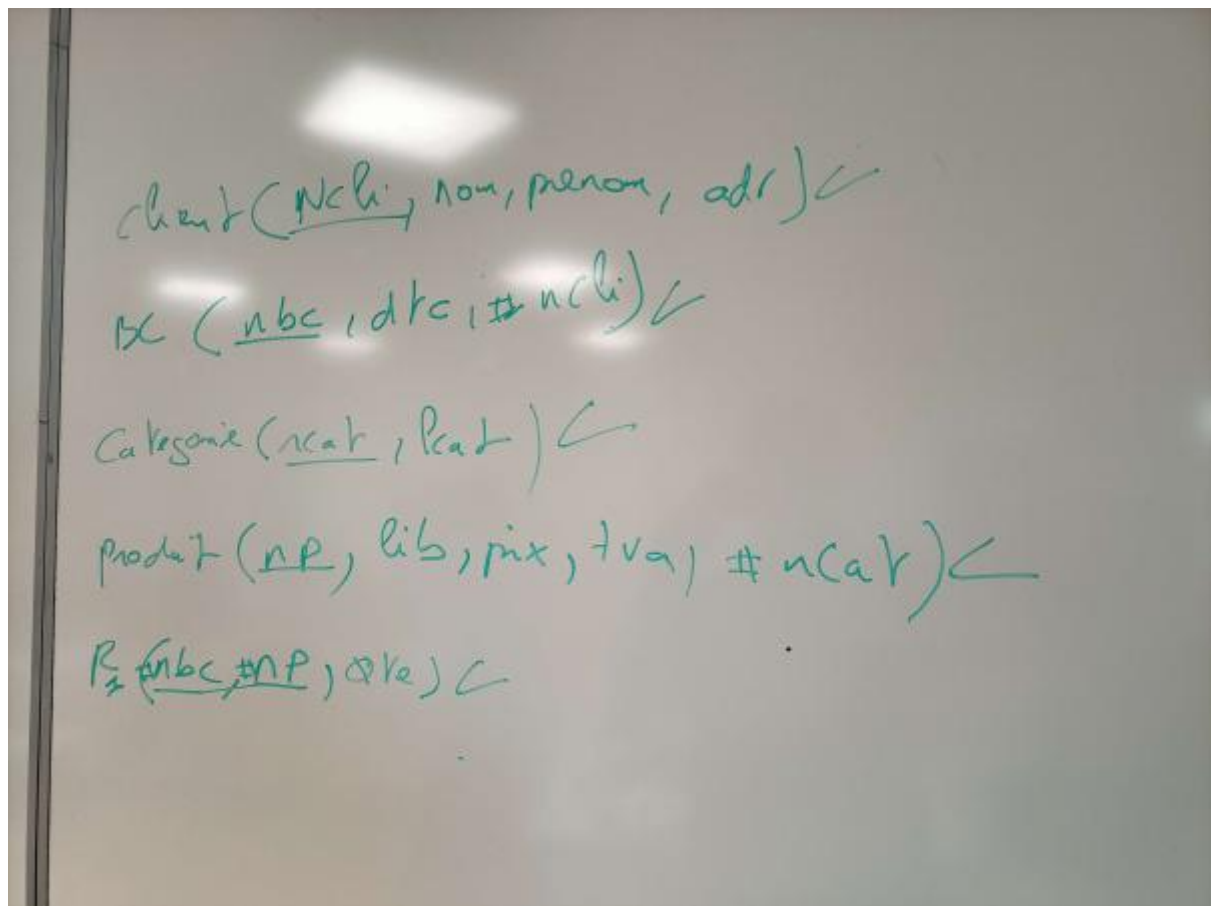 client (Ncli, nom, prenom, adr)
BC (nbc, dtc, # ncli)
Categorie (ncat, lcat)
produit (np, lib, prix, tva, # ncat)
(#nbc, #np, Qte)